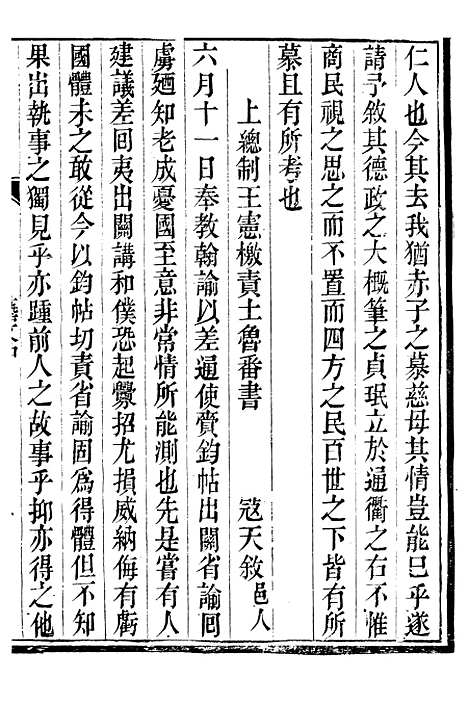 仁人也今其去我猶赤子之慕慈母其情豈能已乎遂
請予敘其德政之大概筆之貞珉立於通衢之右不惟
商民視之思之而不置而四方之民百世之下皆有所
慕且有所考也
上總制王憲檄責土魯番書　寇天敘邑人
六月十一日奉教翰諭以差通使賫鈞帖出關省諭囘
虜廼知老成憂國至意非常情所能測也先是嘗有人
建議差回夷出關講和僕恐起釁招尤損威納侮有虧
國體未之敢從今以鈞帖切責省諭固爲得體但不知
果出執事之獨見乎亦踵前人之故事乎抑亦得之他